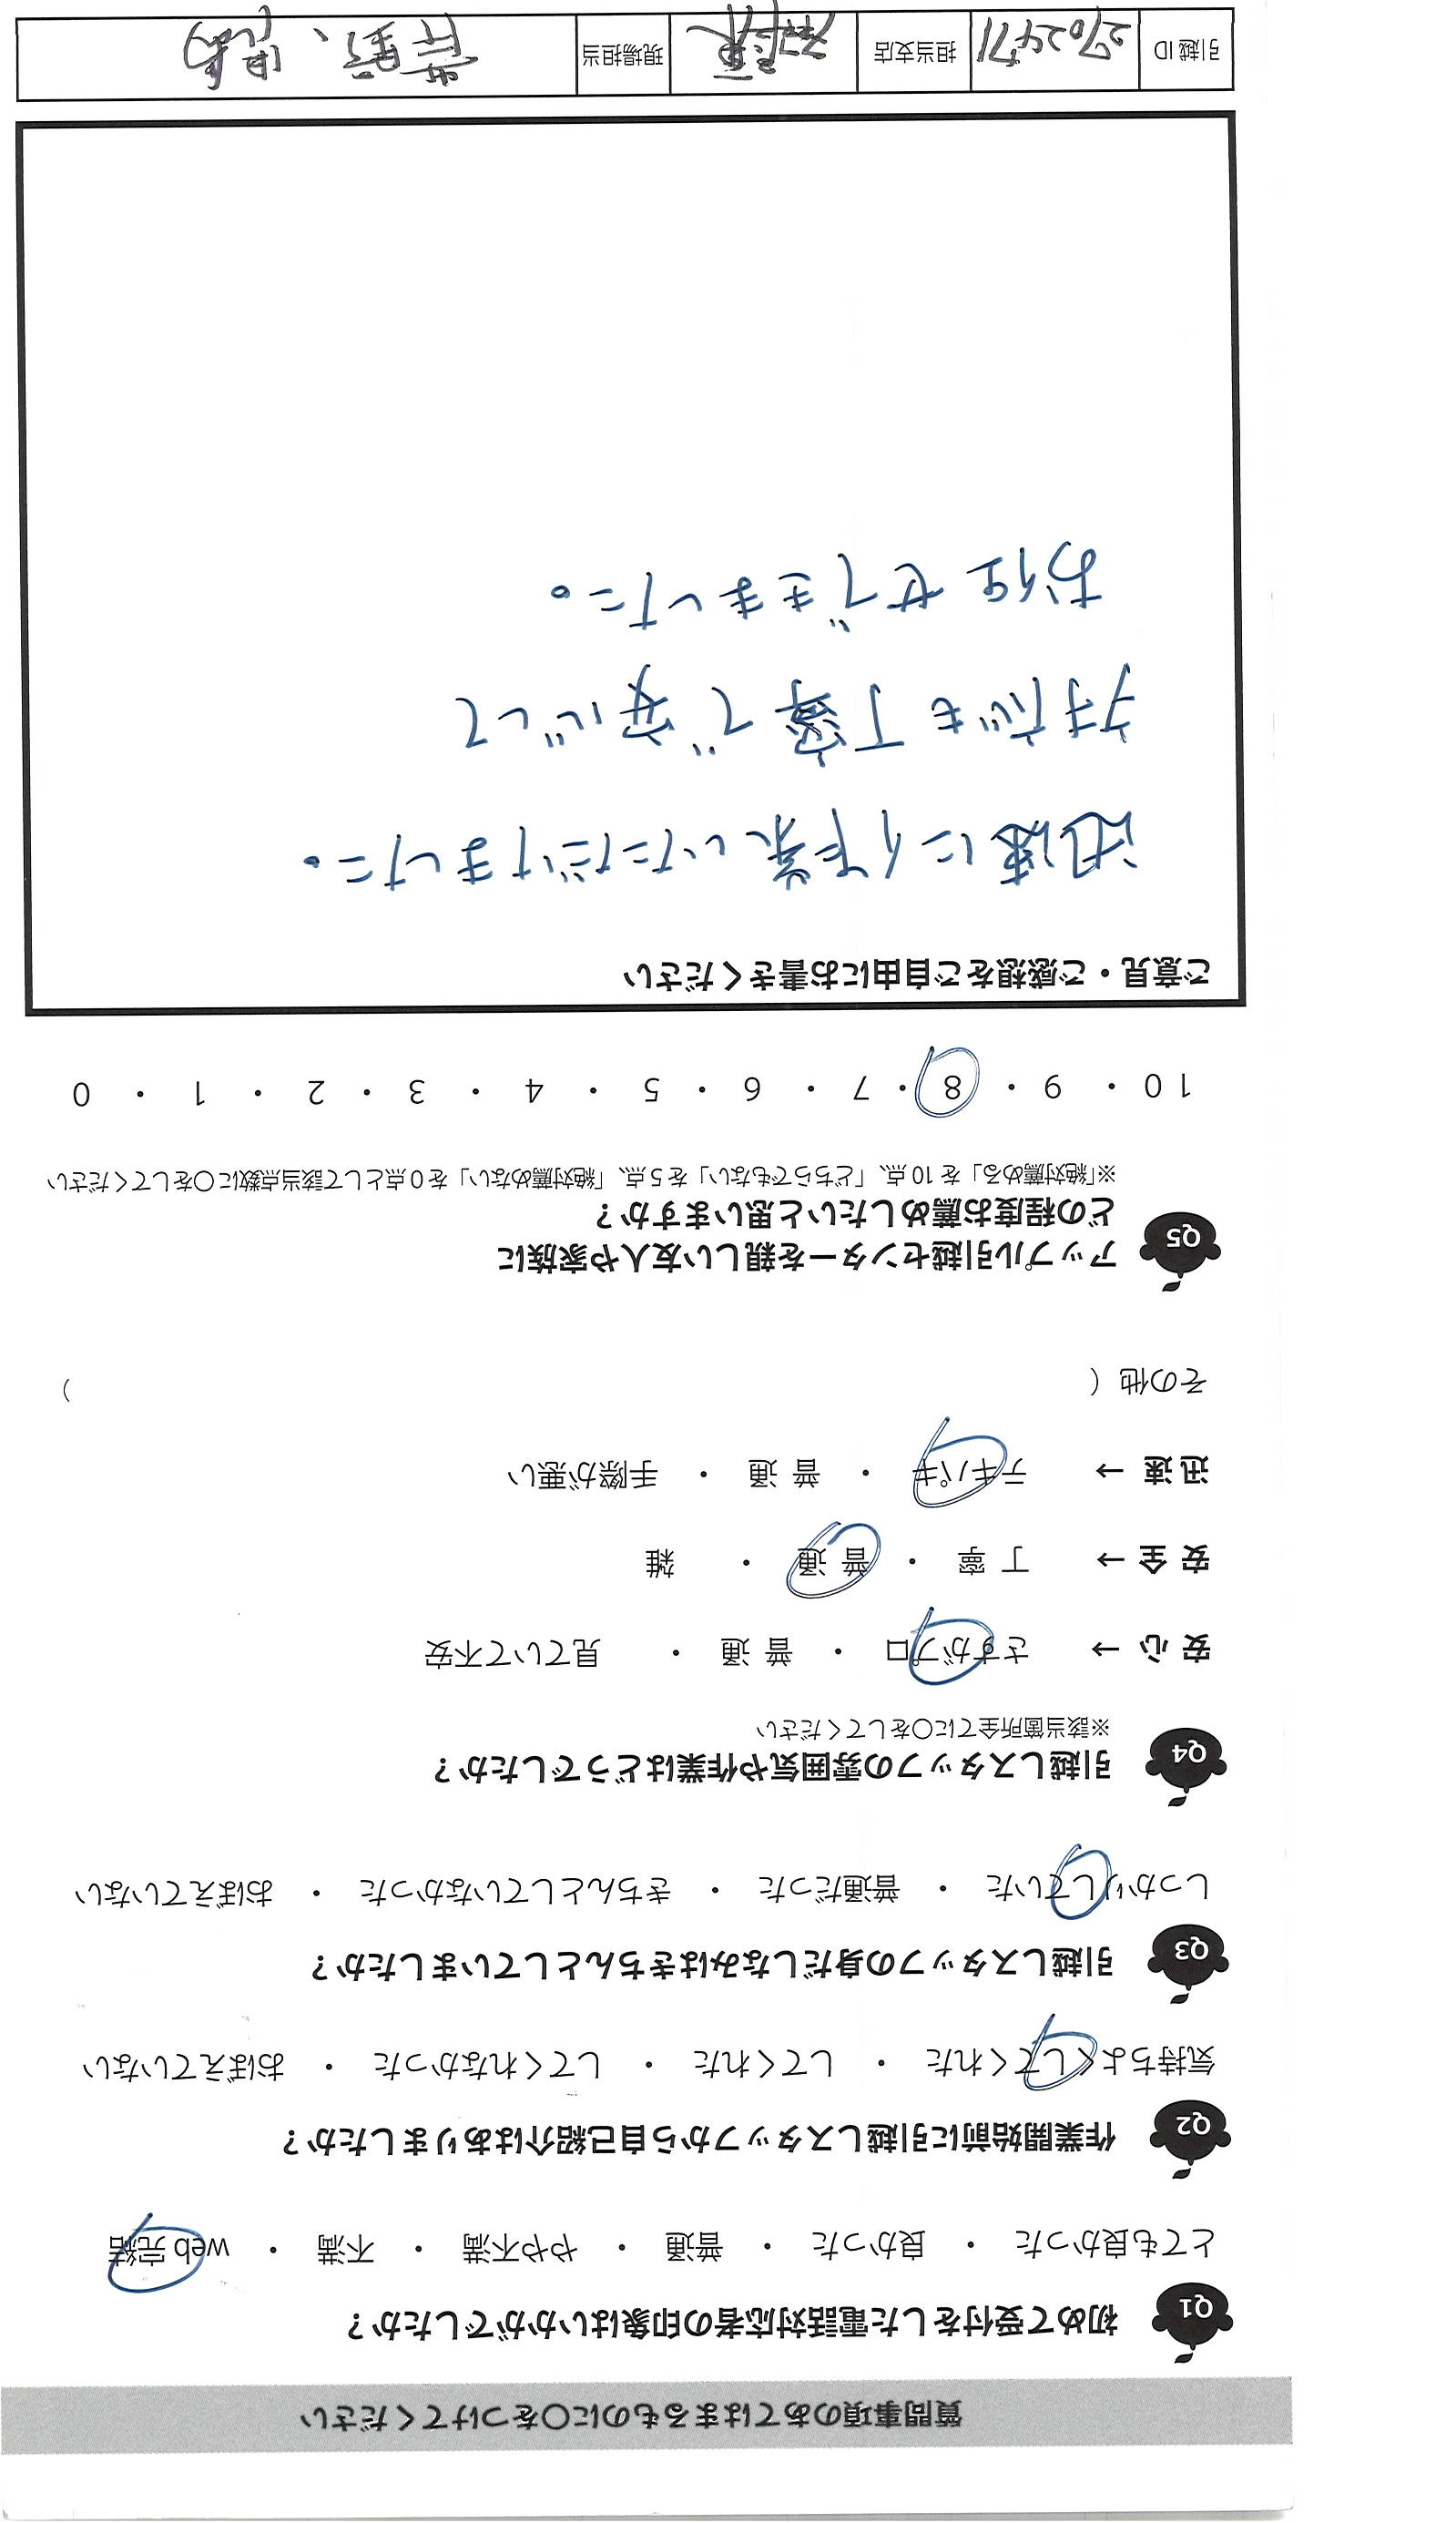 質問事項のあてはまるものに○をつけてください
Q1 初めて受付をした電話対応者の印象はいかがでしたか？
とても良かった ・ 良かった ・ 普通 ・ やや不満 ・ 不満 ・ web 完結
Q2 作業開始前に引越しスタッフから自己紹介はありましたか？
気持ちよくしてくれた ・ してくれた ・ してくれなかった ・ おぼえていない
Q3 引越しスタッフの身だしなみはきちんとしていましたか？
しっかりしていた ・ 普通だった ・ きちんとしていなかった ・ おぼえていない
Q4 引越しスタッフの雰囲気や作業はどうでしたか？
※該当箇所全てに○をしてください
安 心 → さすがプロ ・ 普 通 ・ 見ていて不安
安 全 → 丁 寧 ・ 普 通 ・ 雑
迅 速 → テキパキ ・ 普 通 ・ 手際が悪い
その他（ ）
Q5 アップル引越センターを親しい友人や家族に
どの程度お薦めしたいと思いますか？
※「絶対薦める」を 10 点、「どちらでもない」を 5 点、「絶対薦めない」を 0 点として該当点数に○をしてください
10 ・ 9 ・ 8 ・ 7 ・ 6 ・ 5 ・ 4 ・ 3 ・ 2 ・ 1 ・ 0
ご意見・ご感想をご自由にお書きください
迅速に作業いただけました。
対応も丁寧で安心して
お任せできました。
引越 ID 2702471 担当支店 現場担当